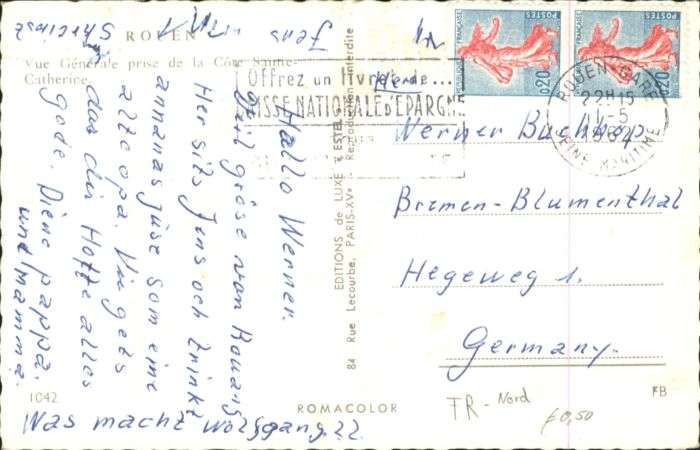 ROUEN
Vue Générale prise de la Côte Sainte-
Catherine.
Hallo Werner.
gruil gröse van Rouang
Her sits Jens och trinkt
annanas jüse som eine
alto opa. Vie gets
das dir Hoffe alles
gode. Diene pappa.
und mamma.
Was macht wolfgang??
Jens
1042
EDITIONS de LUXE "ESTEL"
84 Rue Lecourbe, PARIS-XVe - Reproduction interdite
ROMACOLOR
Offrez un livret de...
CAISSE NATIONALE D'EPARGNE
REPUBLIQUE FRANÇAISE
POSTES
0,20
REPUBLIQUE FRANÇAISE
POSTES
0,20
ROUEN-GARE
22H15
SEINE MARITIME
Werner Buchhop
Bremen-Blumenthal
Hegeweg 1.
Germany.
FR-Nord
€0,50
FB